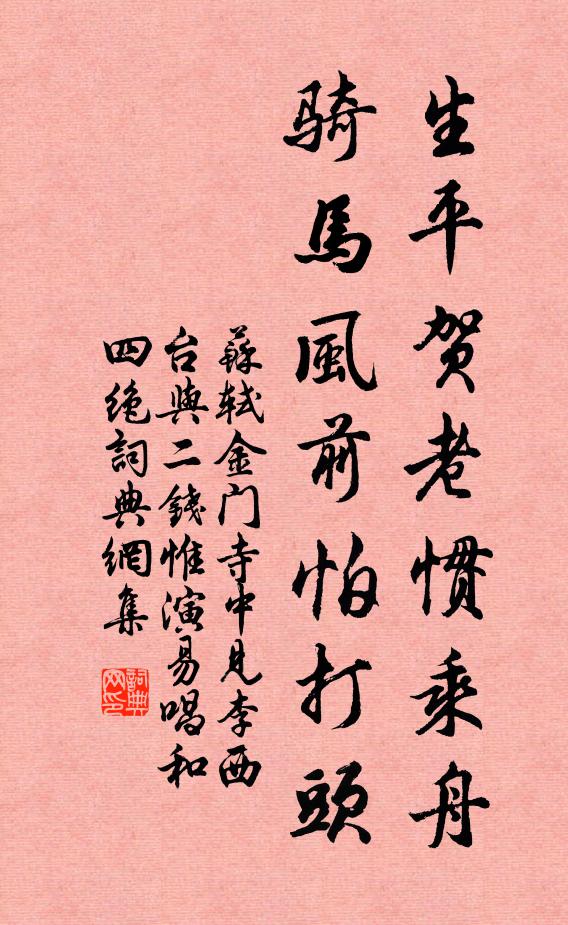 生平贺老惯乘舟
騎馬風前怕打頭
蘇轼金门寺中見李西
台與二錢惟演易唱和
四绝詞典網集
詞典
网印